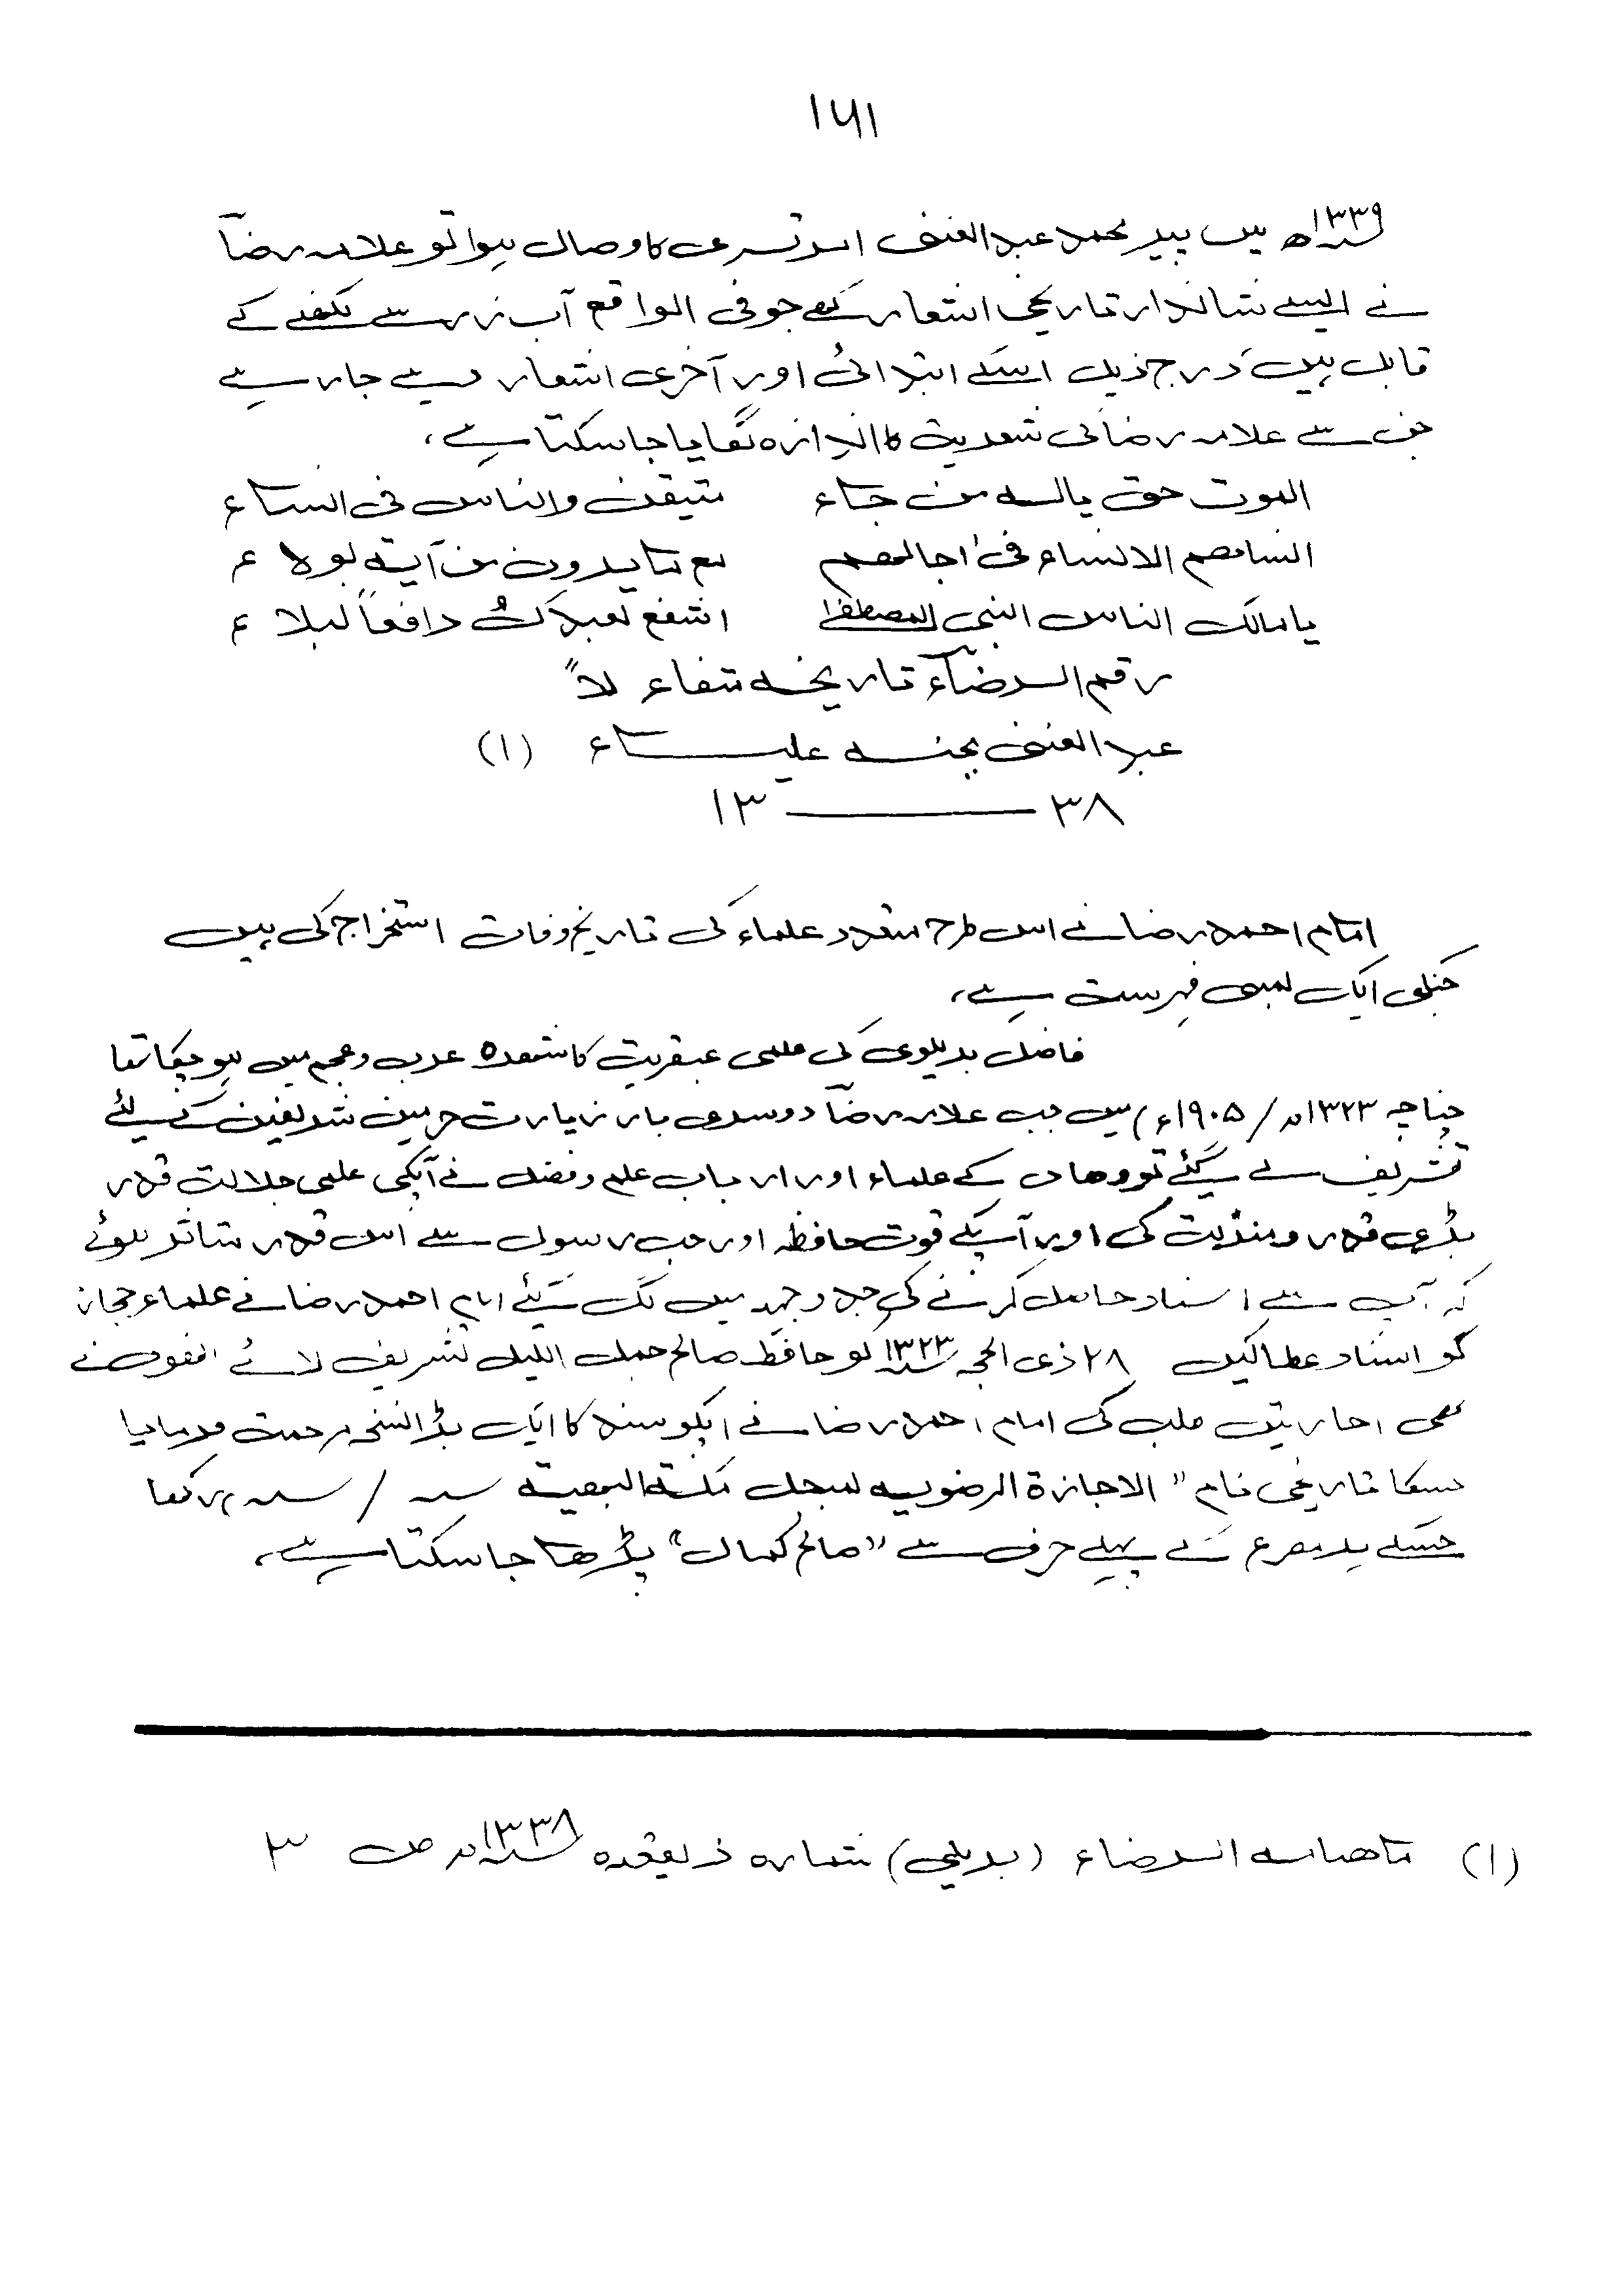 ۱۶۱
۱۳۳۹ھ میں پیر محمد عبد الغنی امرتسری کا وصال ہوا تو علامہ رضآ
نے ایسے شاندار تاریخی اشعار کہے جو فی الواقع آب زر سے لکھنے کے
قابل ہیں درج ذیل اسکے ابتدائی اور آخری اشعار دیے جا رہے
جن سے علامہ رضا کی شعریت کا اندازہ لگایا جا سکتا ہے،
الموت حق یالہ من جاء متیقن والناس فی انساء
انساھم الانساء فی اجالھم مع ما یرون من آیتہ لولاء
یا مالک الناس النبی المصطفٰے اشفع لعبدک دافعاً لبلاء
رقم الرضآء تاریخہ متفاءلاً
عبد الغنی بجنہ علیاء (۱)
۳۸ ــــــ ۱۳
امام احمد رضا نے اس طرح متعدد علماء کی تاریخ وفات استخراج کی ہیں
جنکی ایک لمبی فہرست ہے،
فاضل بریلوی کی علمی عبقریت کا شھرہ عرب و عجم میں ہو چکا تھا
چناچہ ۱۳۲۳ھ / ۱۹۰۵ء) میں جب علامہ رضآ دوسری بار زیارت حرمین شریفین کے لئے
تشریف لے گئے تو وھاں کے علماء اور ارباب علم و فضل نے آپکی علمی جلالت قدر
بڑی قدر و منزلت کی اور آپکے قوت حافظہ اور حب رسول سے اس قدر متاثر ہوئے
کہ آپ سے اسناد حاصل کرنے کی جد و جہد میں لگ گئے امام احمد رضا نے علماء حجاز
کو اسناد عطا کیں ۲۸ ذی الحجہ ۱۳۲۳ کو حافظ صالح جمل اللیل تشریف لائے انھوں نے
بھی اجازتیں طلب کی امام احمد رضا نے اپکو سند کا ایک بڑا نسخہ مرحمت فرمایا
جسکا تاریخی نام "الاجازۃ الرضویہ لمبجل مکۃ البھیتہ سہ / سہ رکھا
جسکے ہر مصرع کے پہلے حرف سے "صالح کمال" پڑھا جا سکتا ہے،
(۱) ماھنامہ الرضاء (بریلی) شمارہ ذیقعدہ ۱۳۳۸ھ ص ۳